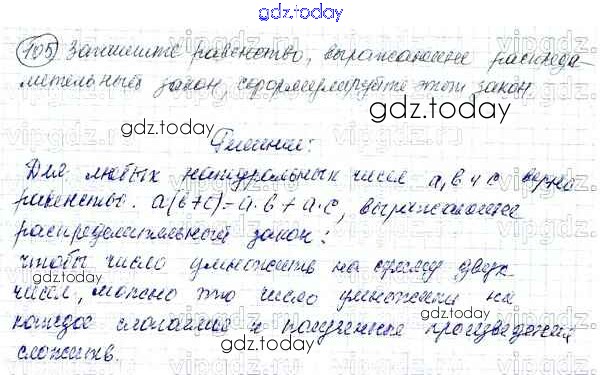 gdz.today
105 Запишите равенство, выражающее распреде-
лительный закон сформулируйте этот закон.
gdz.today
gdz.today
Решение:
Для любых натуральных чисел a, b и c верна
равенство. a(b+c)=a·b+a·c, выражающее
распределительный закон:
gdz.today
чтобы число умножить на сумму двух
чисел, можно это число умножить на
каждое слагаемое и полученные произведения
gdz.today
сложить.